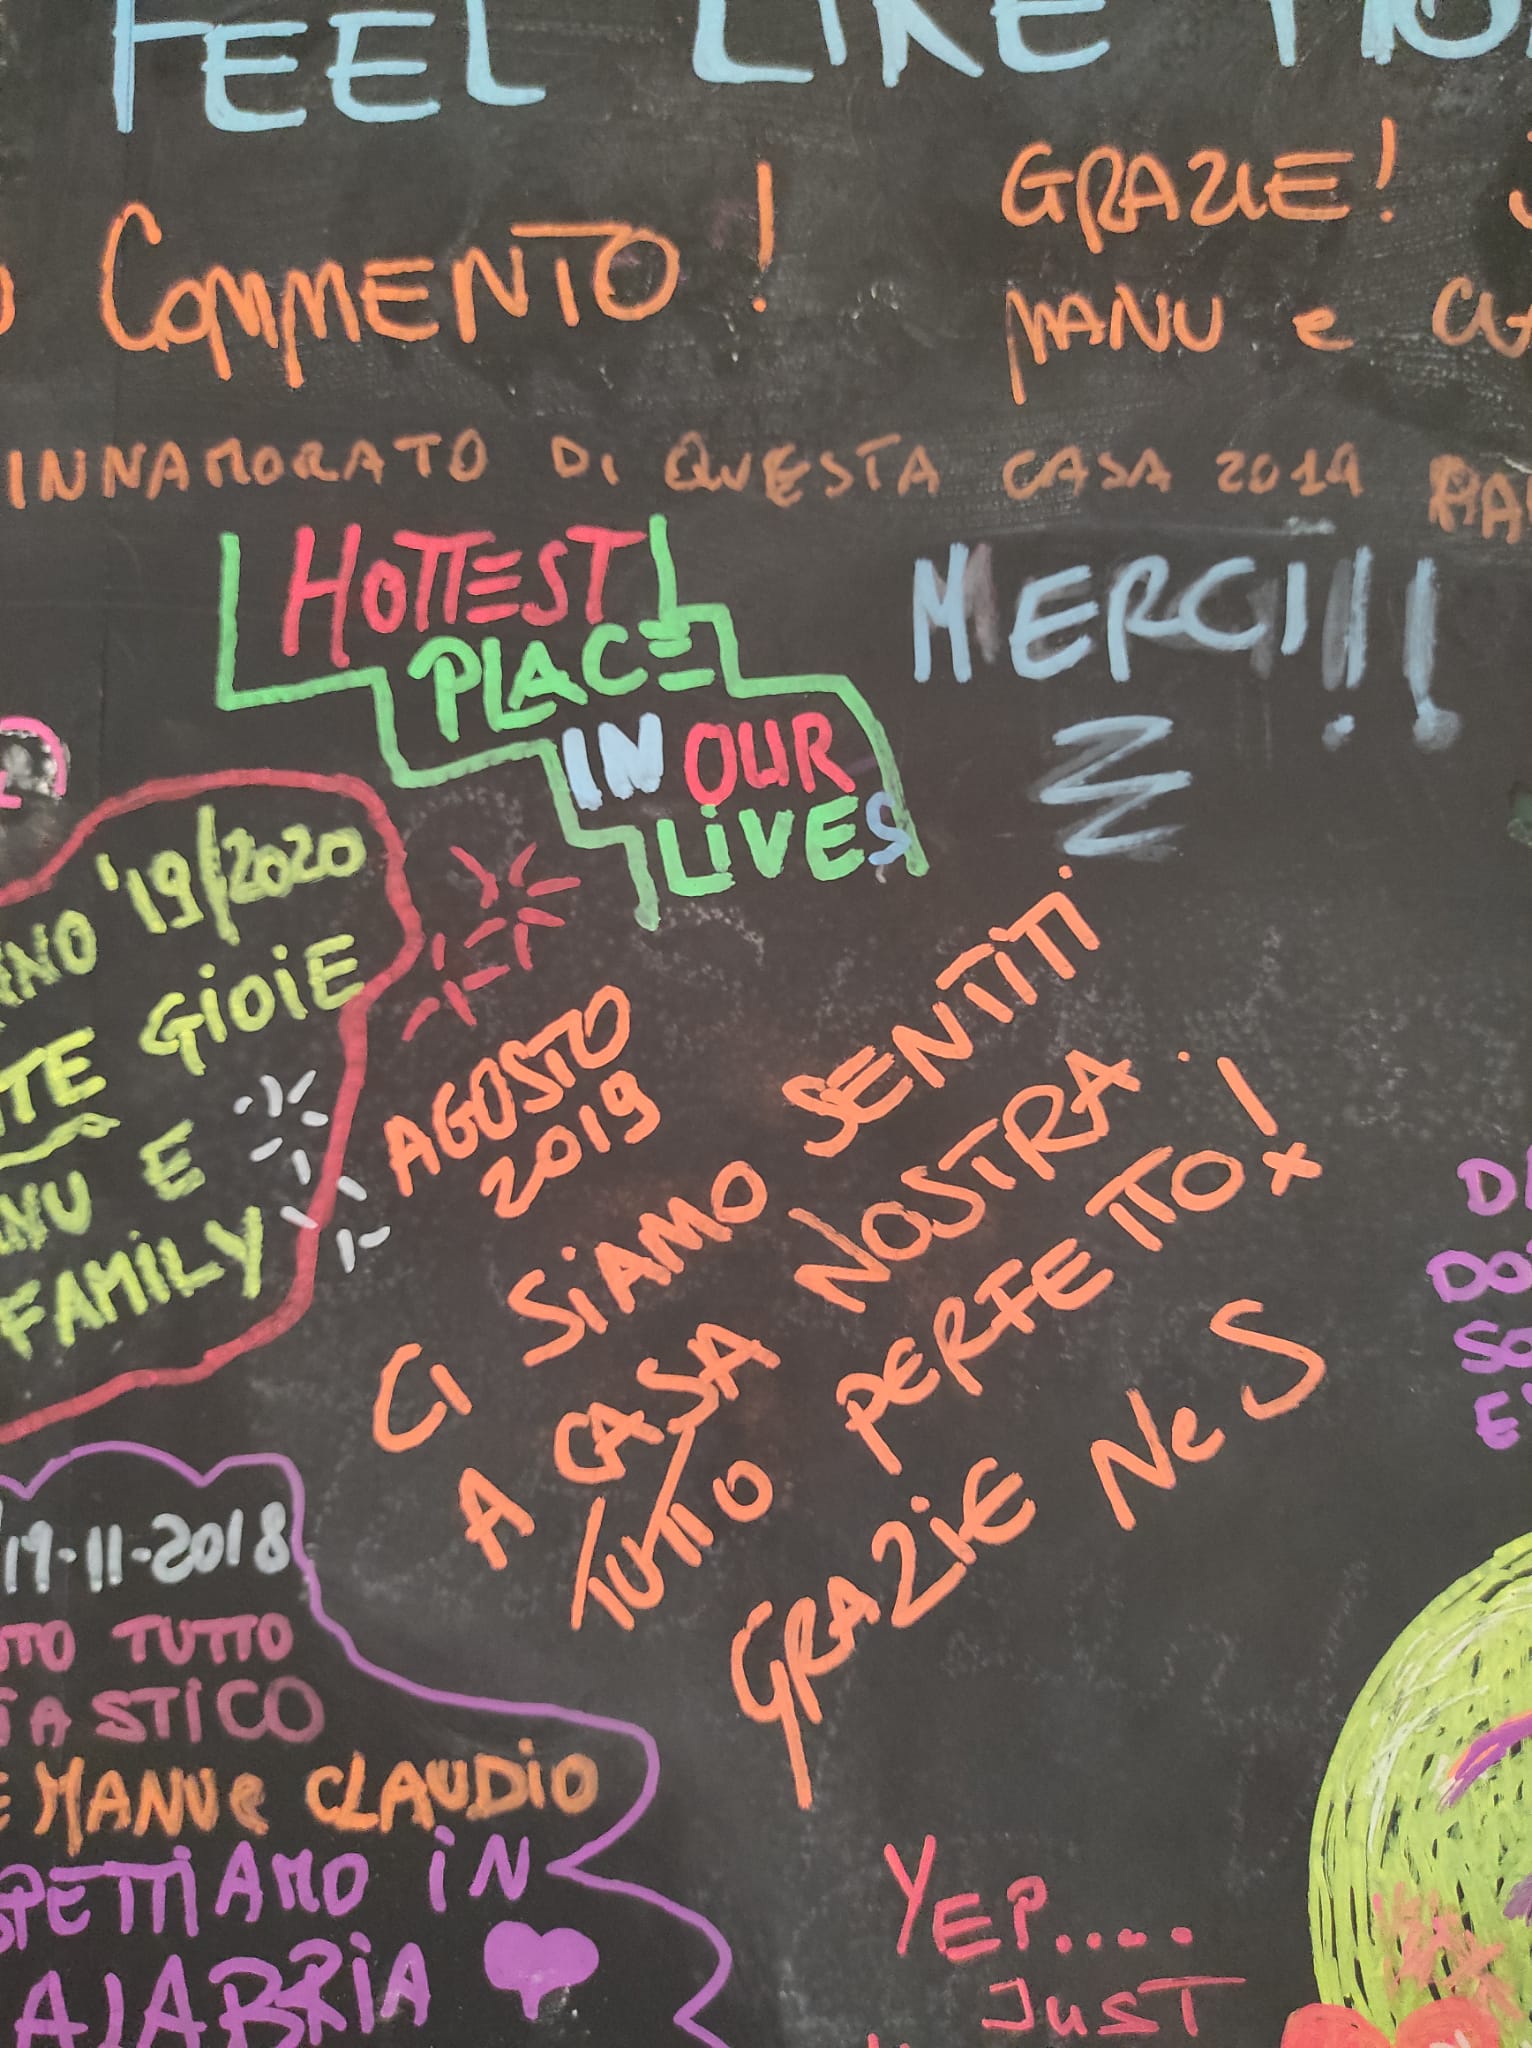 FEEL LIKE
COMMENTO!
GRAZIE!
MANU e
INNAMORATO DI QUESTA CASA 2019
HOTTEST
PLACE
IN OUR
LIVES
MERCI!!!
'19/2020
GIOIE
E
FAMILY
AGOSTO
2019
CI SIAMO SENTITI
A CASA NOSTRA
TUTTO PERFETTO!
GRAZIE N e S
19-11-2018
TUTTO
MANU e CLAUDIO
IN
YEP....
JUST